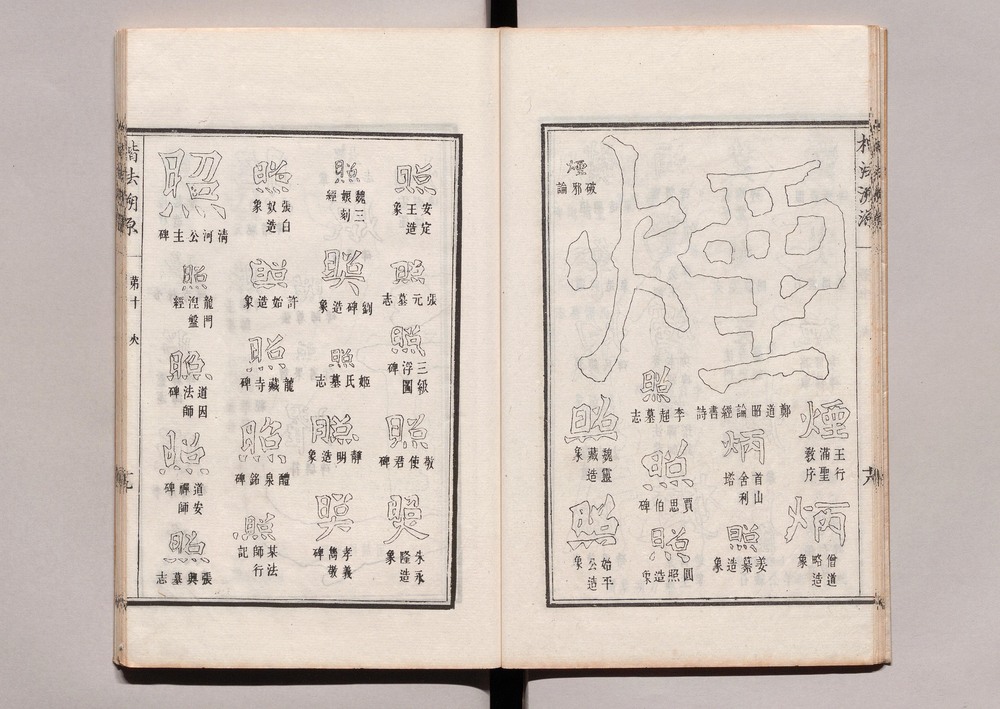 煙
鄭道昭論經書詩
煙
王行滿聖教序
炳
僧道略造象
炳
首山舍利塔
照
姜纂造象
煙
破邪論
照
李超墓志
照
賈思伯碑
照
圓照造象
照
魏靈藏造象
照
始平公造象
照
安定王造象
照
張元墓志
照
三級浮圖碑
照
敬使君碑
照
朱永隆造象
照
魏三娘刻經
照
劉碑造象
照
姬氏墓志
照
靜明造象
照
孝義雋敬碑
照
張白奴造象
照
許始造象
照
龍藏寺碑
照
醴泉銘碑
照
某法師行記
照
清河公主碑
照
龍門涅盤經
照
道因法師碑
照
道安禪師碑
照
張興墓志
楷法溯原
第十 火